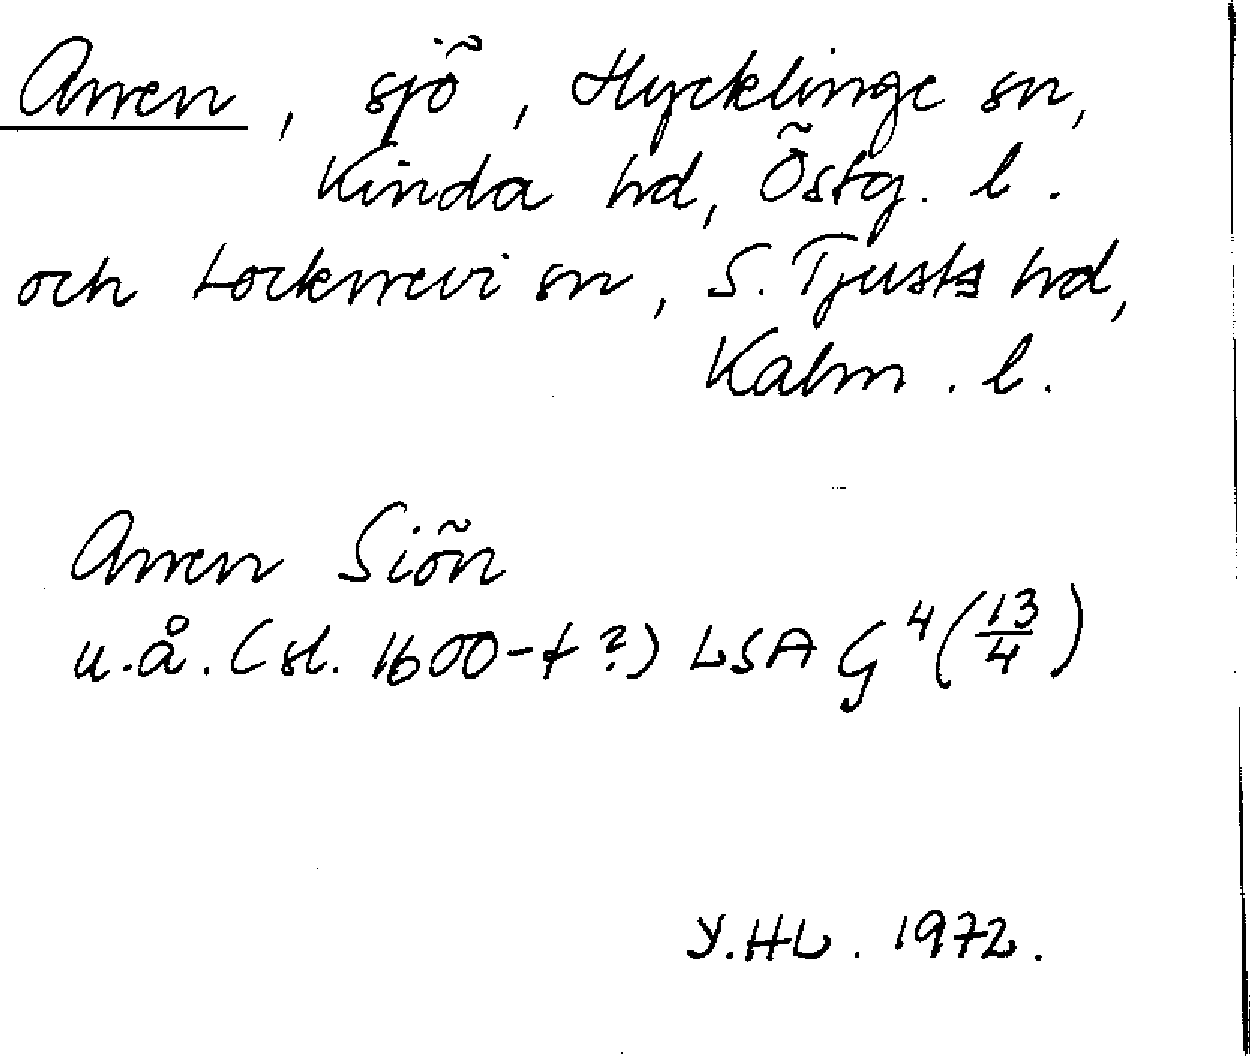 Arren, sjö, Hycklinge sn,
Kinda hd, Östg. l.
och Locknevi sn, S. Tjusts hd,
Kalm. l.
Arren Siön
u.å. (sl. 1600-t?) LSA G⁴(13/4)
Y.HL. 1972.